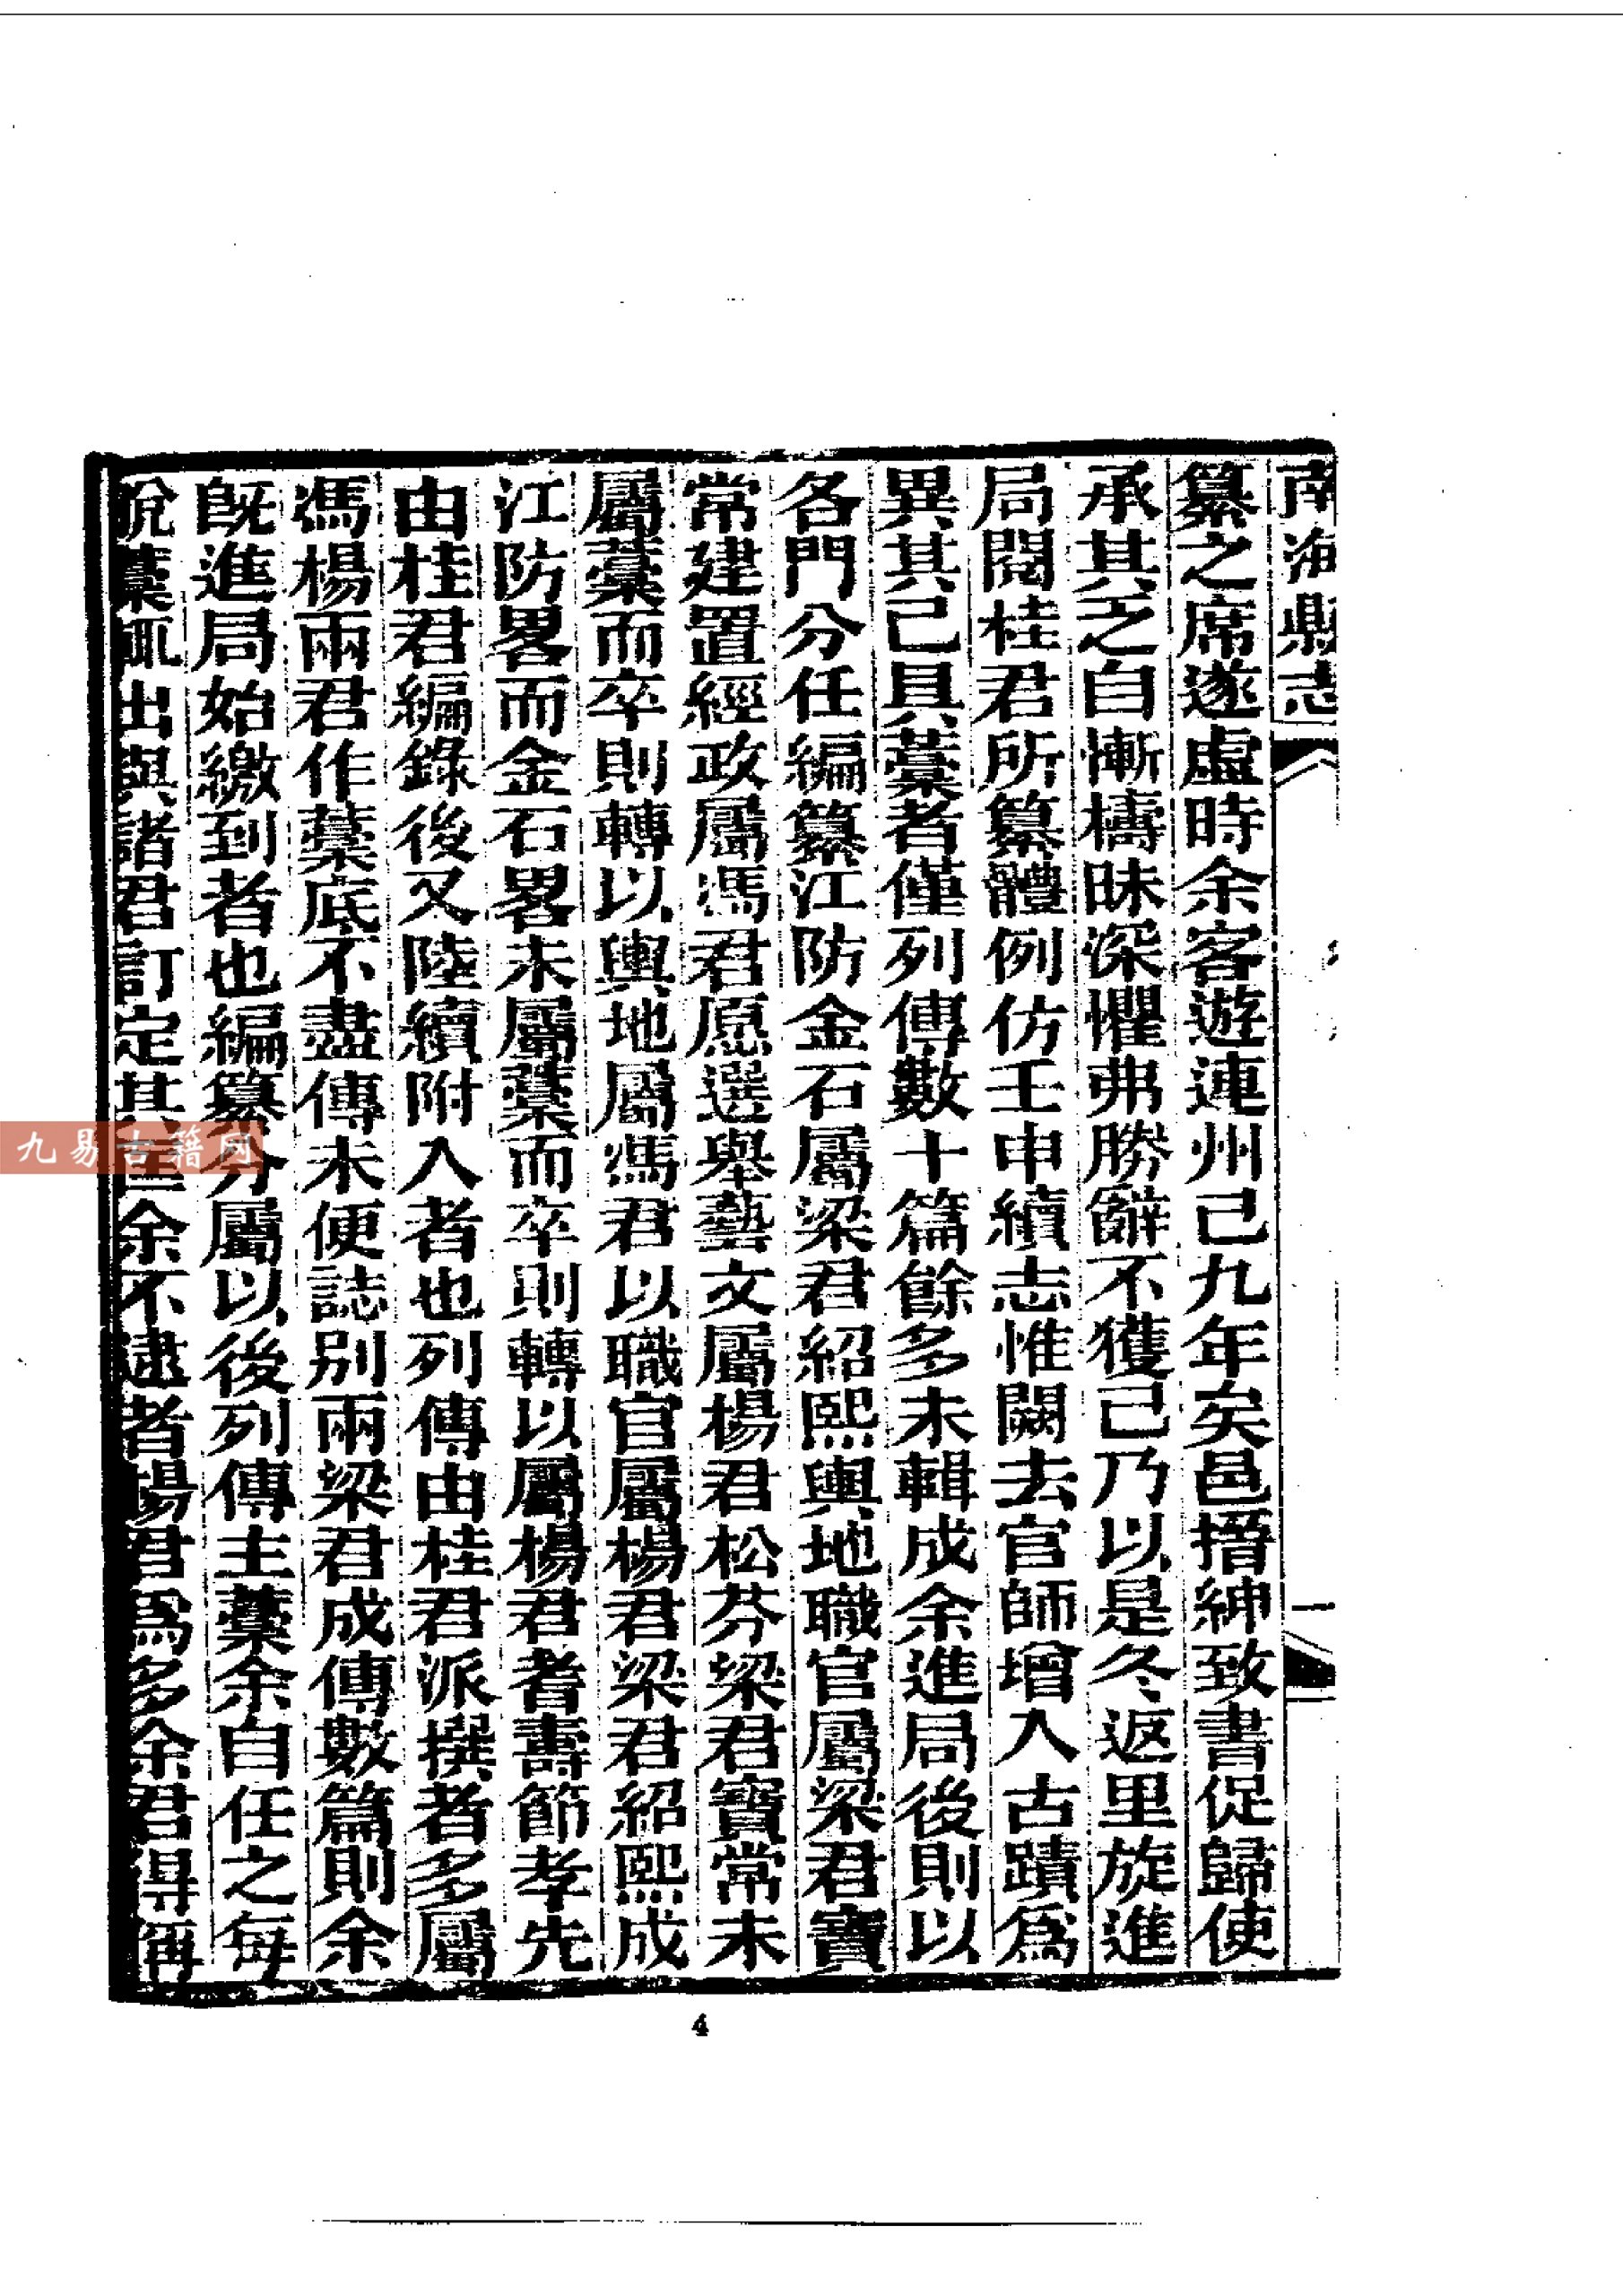 南海縣志
一
纂之席遂虛時余客遊連州已九年矣邑搢紳致書促歸使
承其乏自慚檮昧深懼弗勝辭不獲已乃以是冬返里旋進
局閱桂君所纂體例仿壬申續志惟闕去官師增入古蹟爲
異其已具藁者僅列傳數十篇餘多未輯成余進局後則以
各門分任編纂江防金石屬梁君紹熙輿地職官屬梁君寶
常建置經政屬馮君愿選舉藝文屬楊君松芬梁君寶常未
屬藁而卒則轉以輿地屬馮君以職官屬楊君梁君紹熙成
江防畧而金石畧未屬藁而卒則轉以屬楊君耆壽節孝先
由桂君編錄後又陸續附入者也列傳由桂君派撰者多屬
馮楊兩君作藁底不盡傳未便誌別兩梁君成傳數篇則余
旣進局始繳到者也編纂分屬以後列傳主藁余自任之每
脫藁輒出與諸君訂定其匡余不逮者楊君爲多余君得稱
九易古籍网
4